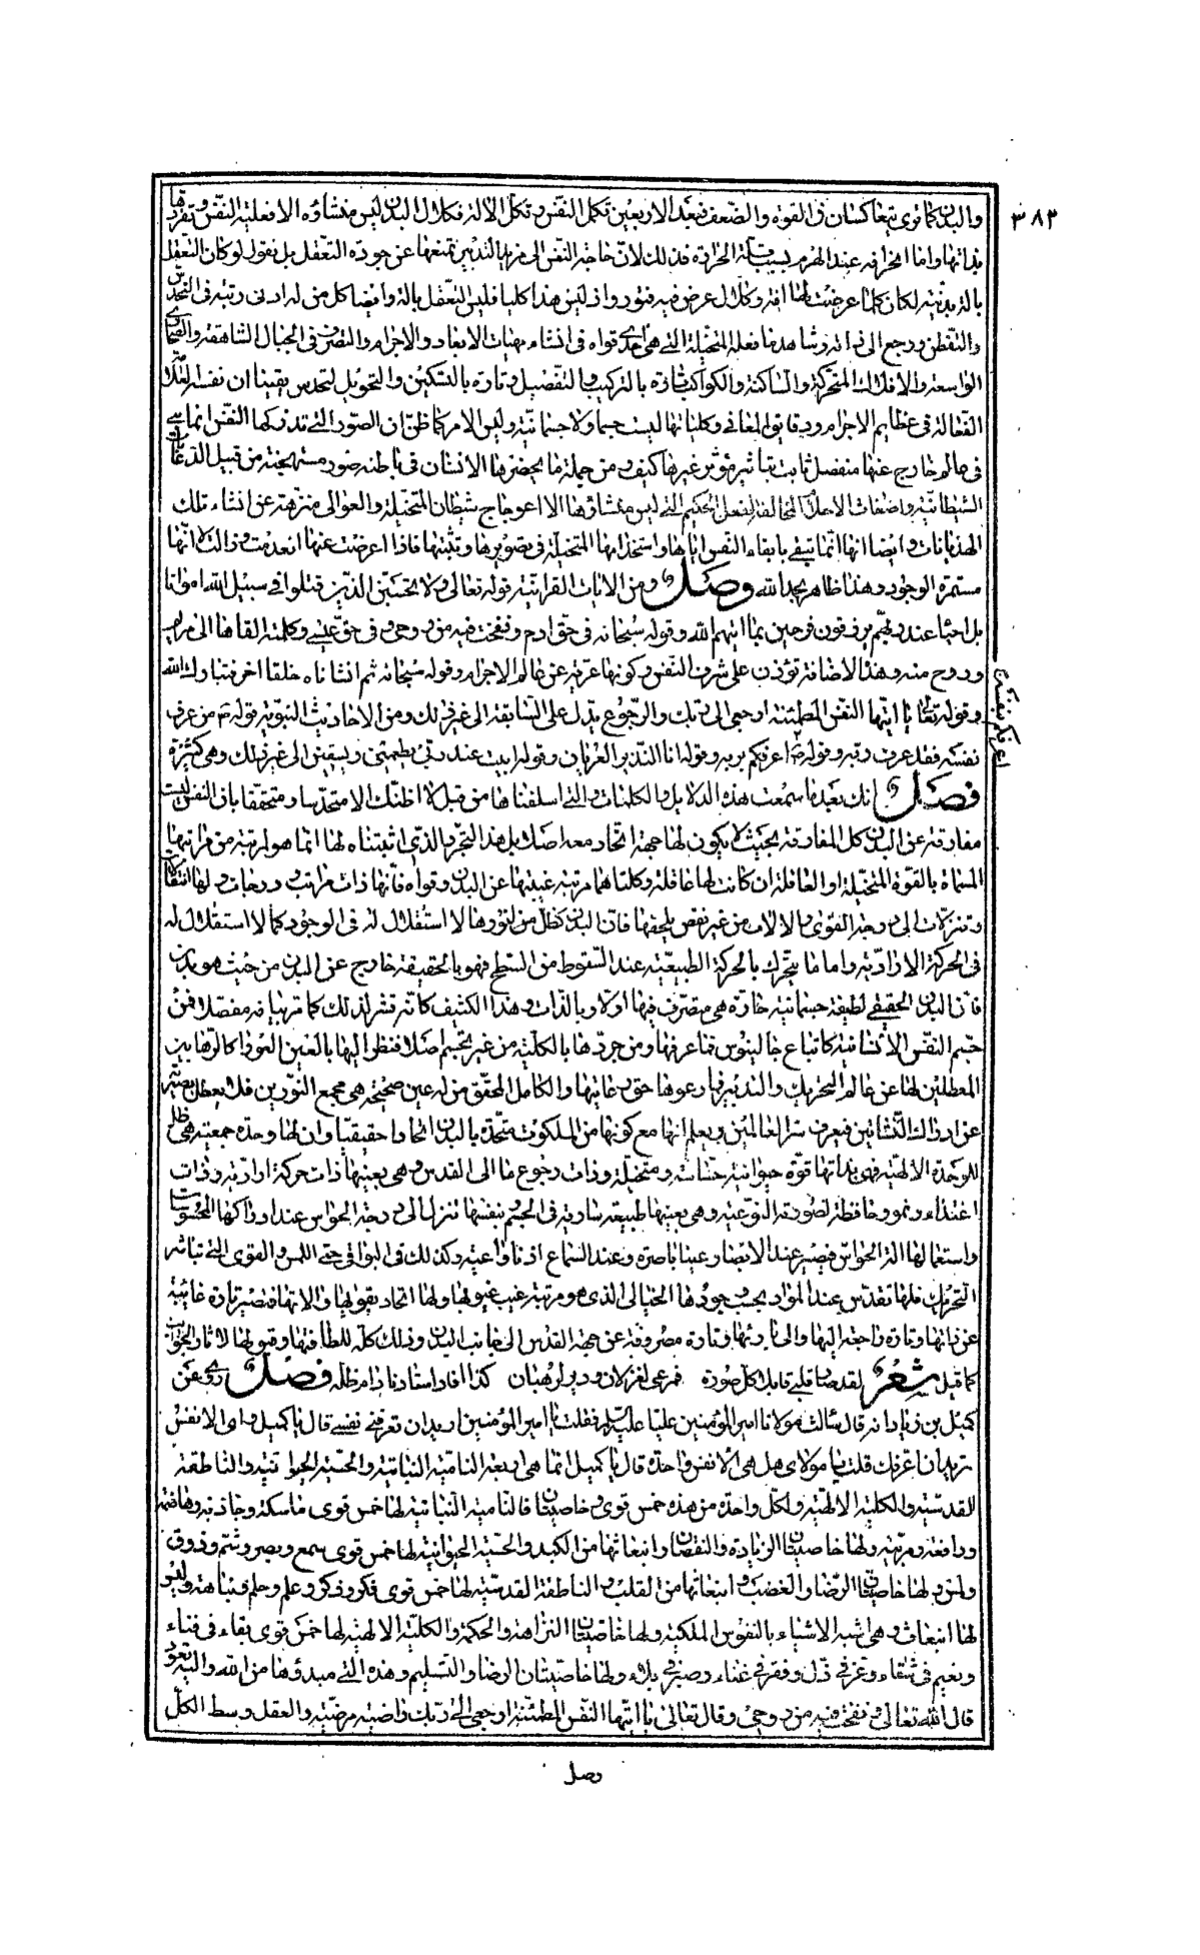 ٣٨٢
والبدن كما ترى يتعاكسان في القوة والضعف فبعد الاربعين تكمل النفس وتكل الالة فكلال البدن ليس منشاؤه الا فعلية النفس وتفردها
بذاتها واما انحرافه عند الهرم بسبب قلة الحرارة فذلك لان حاجة النفس الى مزيد التدبير تمنعها عن جودة التعقل بل نقول لو كان التعقل
بالة بدنية لكان كلما عرضت لها افة وكلال عرض فيه فتور واذ ليس هذا كليا فليس التعقل بالة وايضا كل من له ادنى رتبة في التحدس
والتفطن ورجع الى ذاته وشاهد ما تفعله المتخيلة التي هي احدى قواه في انشاء مهيات الابعاد والاجرام والتصرف في الجبال الشاهقة والصحارى
الواسعة والافلاك المتحركة والساكنة والكواكب تارة بالتركيب والتفصيل وتارة بالتسكين والتحويل لتحدس يقينا ان نفسه العلامة
الفعالة في عظايم الاجرام ودقايق المعاني وكلياتها ليست جسما ولا جسمانية وليس الامر كما ظن ان الصور التي تدركها النفس انما هي
في عالم خارج عنها منفصل ثابت بتاثير مؤثر غيرها كيف ومن جملة ما يحضرها الانسان في باطنه صور مستهجنة من قبيل الدعابات
الشيطانية واضغاث الاحلام المخالفة لفعل الحكيم التي ليس منشاؤها الا اعوجاج شيطان المتخيلة والعوالى منزهة عن انشاء تلك
الهذيانات وايضا انها انما تبقى بابقاء النفس اياها واستخدامها المتخيلة في تصويرها وتثبتها فاذا اعرضت عنها انعدمت وزالت لا انها
مستمرة الوجود وهذا ظاهر بحمد الله وصل ومن الايات القرانية قوله تعالى ولا تحسبن الذين قتلوا في سبيل الله امواتا
بل احياء عند ربهم يرزقون فرحين بما اتيهم الله وقوله سبحانه في حق ادم ونفخت فيه من روحى وفي حق عيسى وكلمته القاها الى مريم
وروح منه وهذه الاضافة تؤذن على شرف النفس وكونها عرية عن عالم الاجرام وقوله سبحانه ثم انشاناه خلقا اخر فتبارك الله
وقوله تعالى يا ايتها النفس المطمئنة ارجعي الى ربك والرجوع يدل على السابقة الى غير ذلك ومن الاحاديث النبوية قوله ص من عرف
نفسه فقد عرف ربه وقوله ص اعرفكم بربه وقوله انا النذير العريان وقوله ابيت عند ربي يطعمني ويسقيني الى غير ذلك وهي كثيرة
اعرفكم بنفسه
فصل انك بعد ما سمعت هذه الدلايل والكلمات والتي اسلفناها من قبل لا اظنك الا متحدسا ومتحققا بان النفس ليست
مفارقة عن البدن كل المفارقة بحيث لا يكون لها جهة اتحاد معه اصلا بل هذا التجرد الذي اثبتناه لها انما هو لمرتبة من مراتبها
المسماة بالقوة المتخيلة او العاقلة ان كانت لها عاقلة وكلتاهما مرتبة غيبتها عن البدن وقواه فانها ذات مراتب ودرجات ولها ارتقاات
وتنزلات الى درجة القوى والالات من غير نقص يلحقها فان البدن كظل من نورها لا استقلال له في الوجود كما لا استقلال له
في الحركة الارادية واما ما يتحرك بالحركة الطبيعية عند السقوط من السطح فهو بالحقيقة خارج عن البدن من حيث هو بدن
فان البدن الحقيقي لطيفة جسمانية حارة هي متصرف فيها اولا وبالذات وهذا الكثيف كانه قشر لذلك كما مر بيانه مفصلا فمن
جسم النفس الانسانية كاتباع جالينوس فما عرفها ومن جردها بالكلية من غير تجسم اصلا فنظر اليها بالعين العورا كالرهابين
المعطلين لها عن عالم التحريك والتدبير فما رعوها حق رعايتها والكامل المحقق من له عين صحيحة هي مجمع النورين فلا يعطل بصيرته
عن ادراك النشاتين فيعرف سر العالمين ويعلم انها مع كونها من الملكوت متحدة بالبدن اتحادا حقيقيا وان لها وحدة جمعية هي ظل
للوحدة الالهية فهي بذاتها قوة حيوانية حساسة ومتخيلة وذات رجوع ما الى القدس وهي بعينها ذات حركة ارادية وذات
اغتذاء ونمو وحافظة لصورته النوعية وهي بعينها طبيعة سارية في الجسم بنفسها تنزل الى درجة الحواس عند ادراكها المحسوسات
واستعمالها الة الحواس فيصير عند الابصار عينا باصرة وعند السماع اذنا واعية وكذلك في البواقي حتى اللمس والقوى التي تباشر
التحريك فلها تقدس عند المواد بحسب وجودها الخيالى الذي هو مرتبة غيب غيوبها ولها اتحاد بقواها والاتها فتصير تارة غائبة
عن ذاتها وتارة راجعة اليها والى بارئها وتارة مصروفة عن جهة القدس الى جانب البدن وذلك كله للطافتها وقبولها لاثار الجوانب
كما قيل شعر لقد صار قلبي قابلا كل صورة فمرعى لغزلان ودير لرهبان كذا افاد استادنا دام ظله فصل روى عن
كميل بن زياد انه قال سالت مولانا امير المؤمنين عليا عليه السلام فقلت يا امير المؤمنين اريد ان تعرفني نفسي قال يا كميل واي الانفس
تريد ان اعرفك قلت يا مولاى هل هي الا نفس واحدة قال يا كميل انما هي اربعة النامية النباتية والحسية الحيوانية والناطقة
القدسية والكلية الالهية ولكل واحدة من هذه خمس قوى وخاصيتان فالنامية النباتية لها خمس قوى ماسكة وجاذبة وهاضمة
ودافعة ومربية ولها خاصيتان الزيادة والنقصان وانبعاثها من الكبد والحسية الحيوانية لها خمس قوى سمع وبصر وشم وذوق
ولمس ولها خاصيتان الرضا والغضب وانبعاثها من القلب والناطقة القدسية لها خمس قوى فكر وذكر وعلم وحلم ونباهة وليس
لها انبعاث وهي اشبه الاشياء بالنفوس الملكية ولها خاصيتان النزاهة والحكمة والكلية الالهية لها خمس قوى بقاء في فناء
ونعيم في شقاء وعز في ذل وفقر في غناء وصبر في بلاء ولها خاصيتان الرضا والتسليم وهذه التي مبدؤها من الله واليه تعود
قال الله تعالى ونفخت فيه من روحى وقال تعالى يا ايتها النفس المطمئنة ارجعي الى ربك راضية مرضية والعقل وسط الكل
وصل